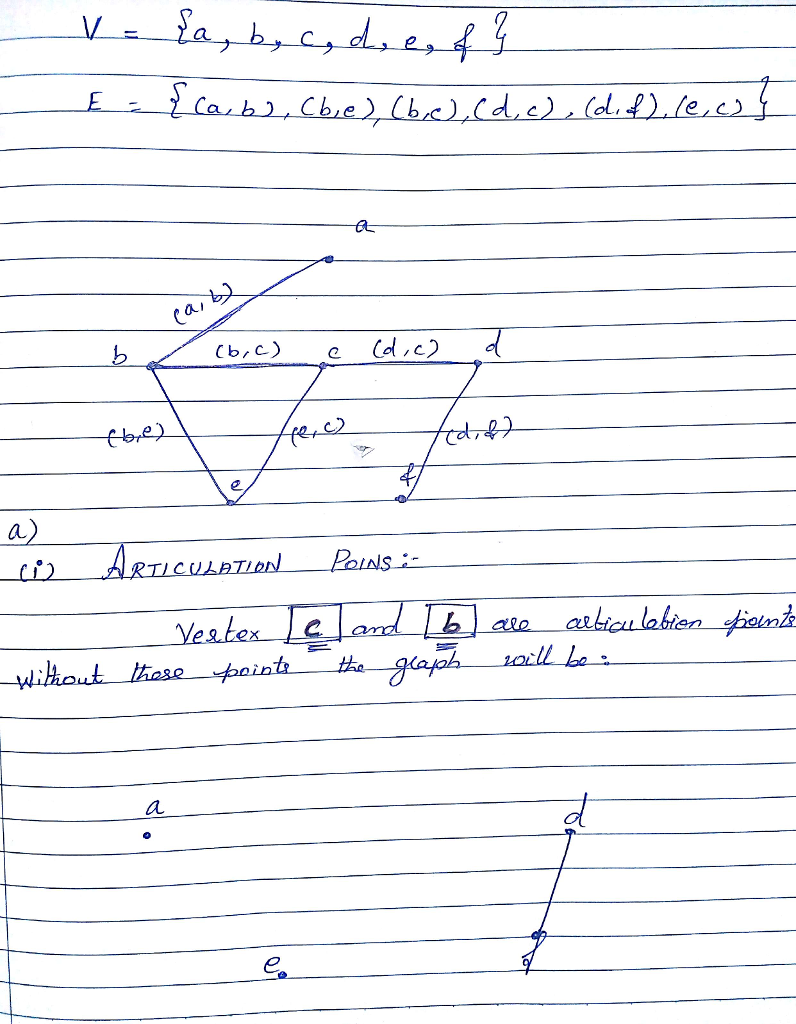 V = {a, b, c, d, e, f}
E = {(a,b), (b,e), (b,c), (d,c), (d,f), (e,c)}
a
(a,b)
b (b,c) c (d,c) d
(b,e) (e,c) (d,f)
e f
a)
(i) ARTICULATION POINS :-
Vertex c and b are articulation points
without these points the graph will be :
a d
e f